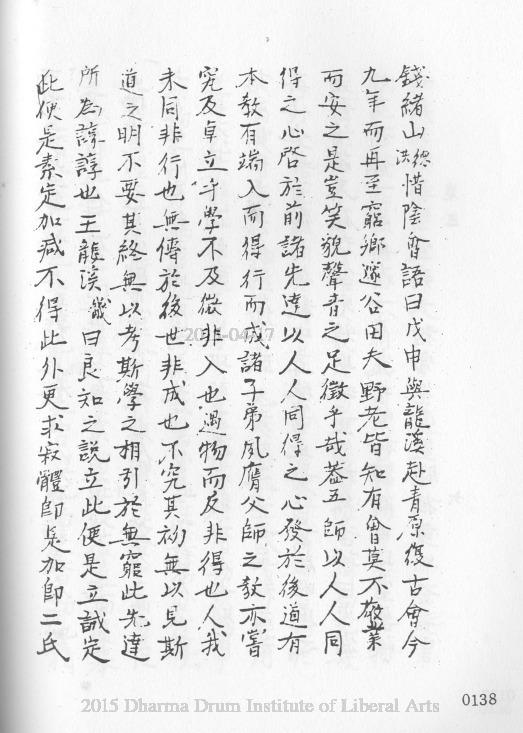 錢緒山德洪惜陰會語曰戊申與龍溪赴青原復古會今
九年而再至窮鄉邃谷田夫野老皆知有會莫不敬業
而安之是豈笑貌聲音之足徵乎哉蓋五師以人人同
得之心啓於前諸先達以人人同得之心發於後道有
本教有端入而得行而成諸子弟夙膺父師之教亦嘗
究及卓立乎學不及微非入也遇物而反非得也人我
未同非行也無傳於後世非成也不究其初無以見斯
道之明不要其終無以考斯學之相引於無窮此先達
所為諄諄也王龍溪畿曰良知之說立此便是立誠定
此便是素定加減不得此外更求寂體即是加即二氏
2015 Dharma Drum Institute of Liberal Arts
0138